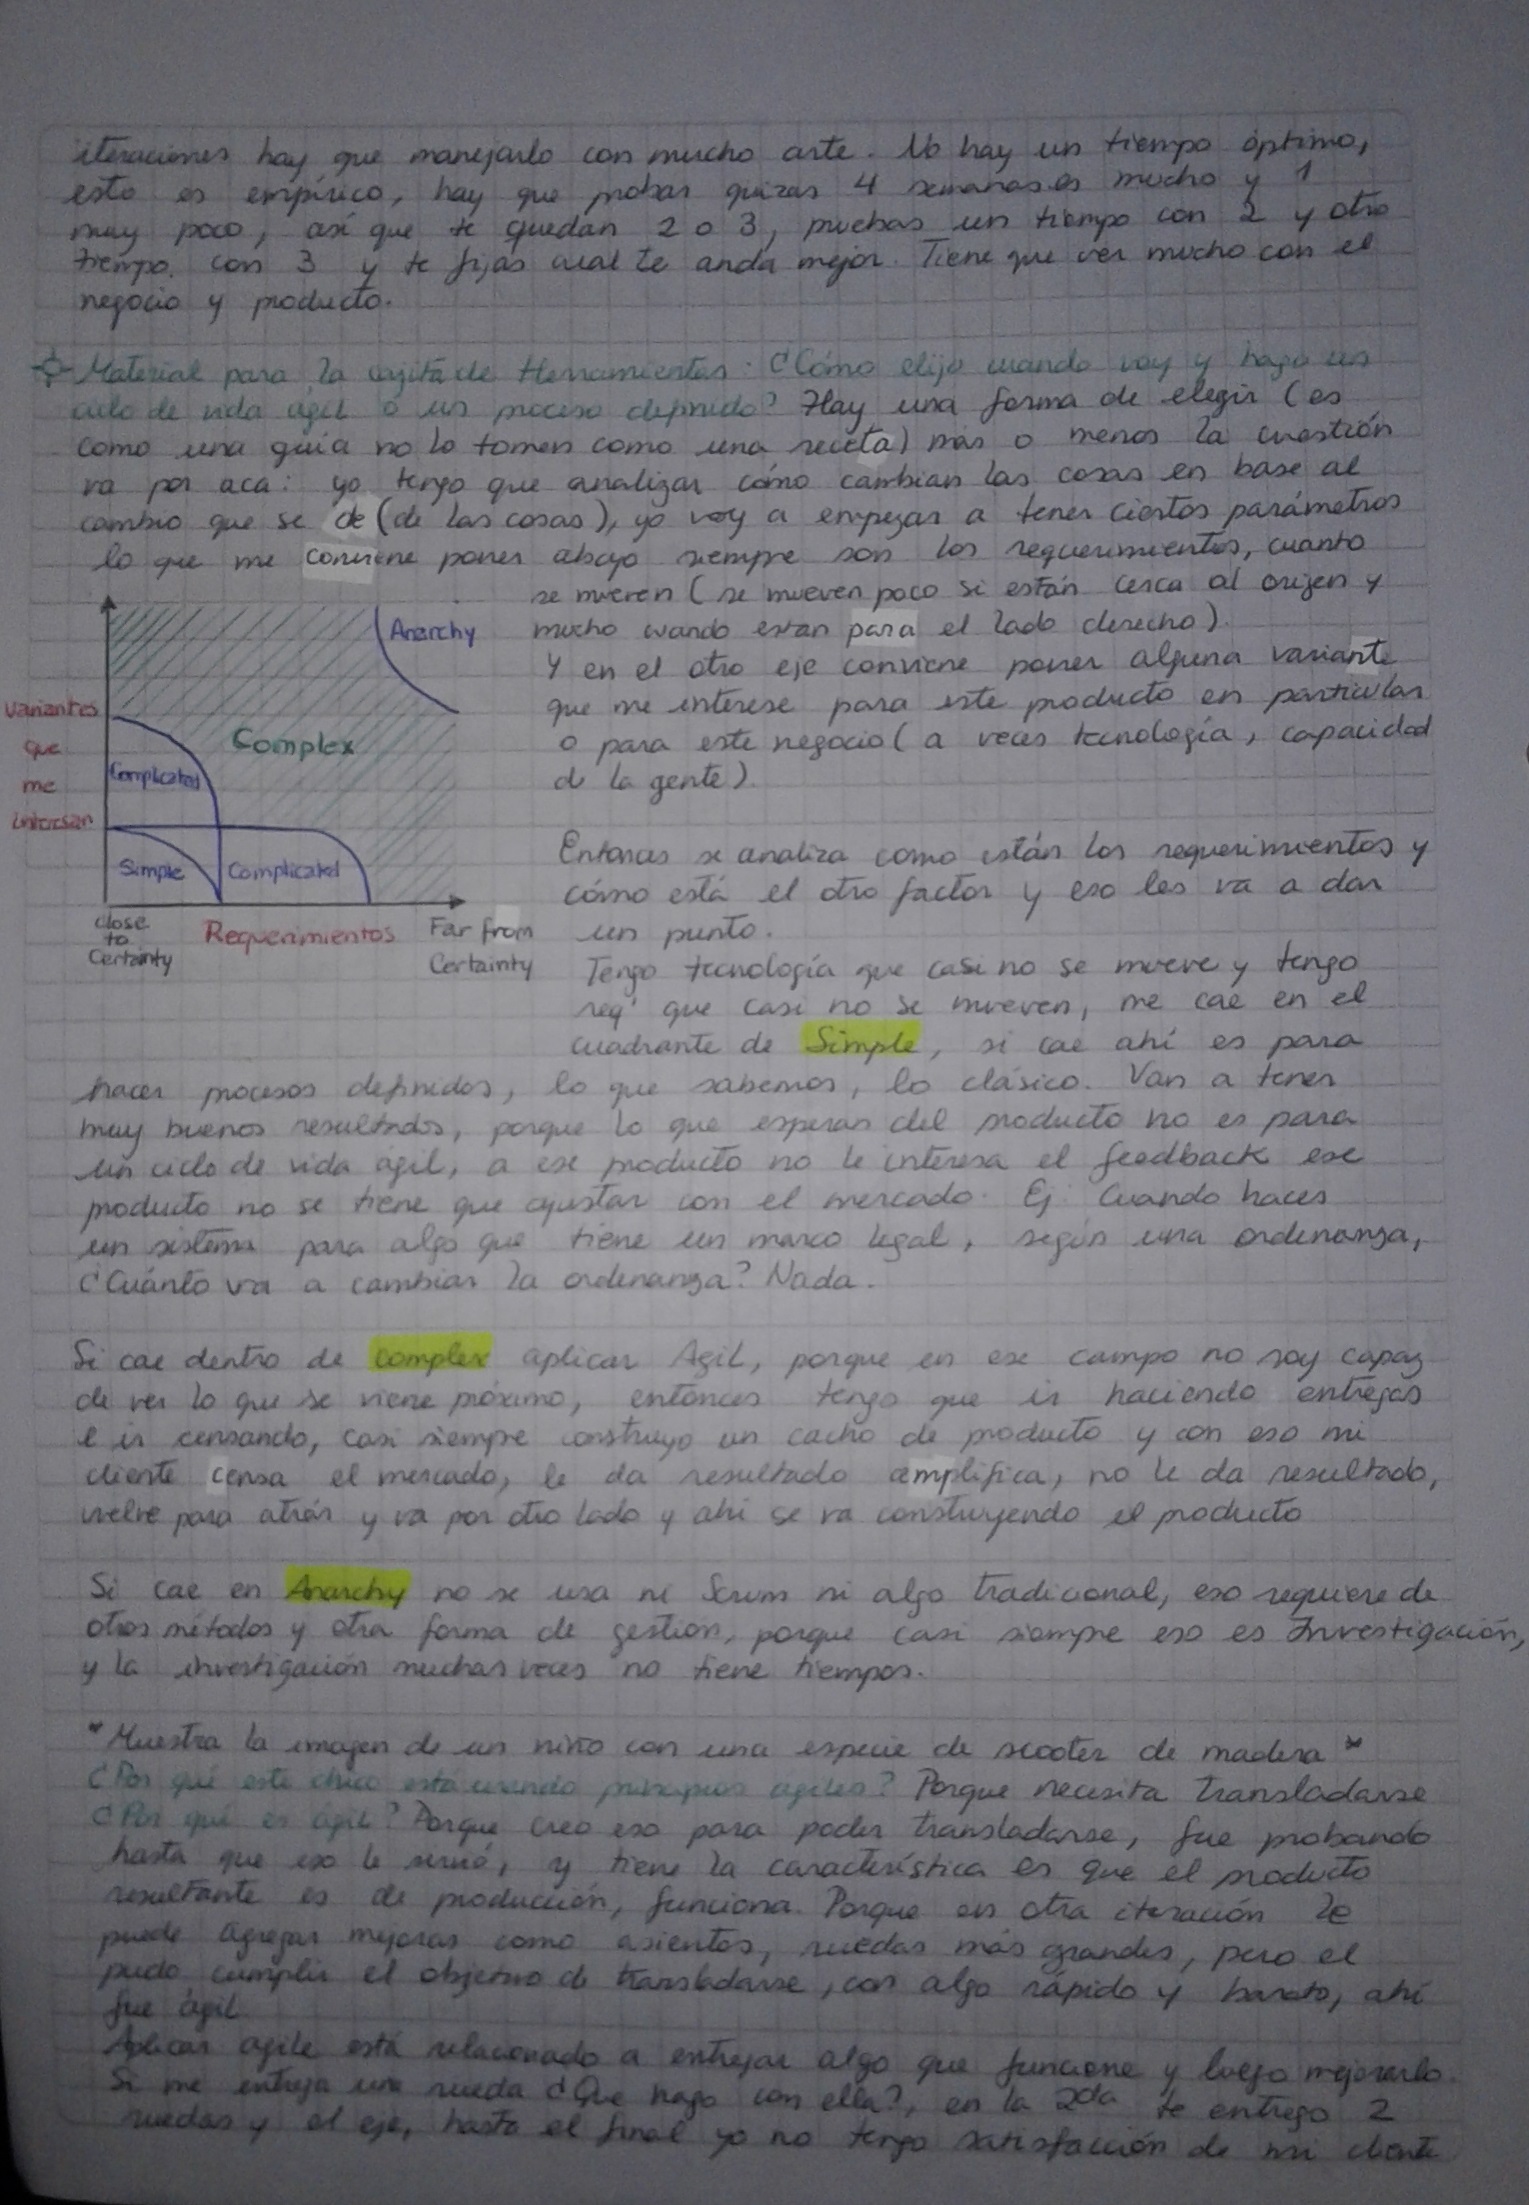 iteraciones hay que manejarlo con mucho arte. No hay un tiempo óptimo,
esto es empírico, hay que probar quizas 4 semanas es mucho y 1
muy poco, así que te quedan 2 o 3, pruebas un tiempo con 2 y otro
tiempo con 3 y te fijas cual te anda mejor. Tiene que ver mucho con el
negocio y producto.
Material para la cajita de Herramientas: ¿Cómo elijo cuando voy y hago un
ciclo de vida agil o un proceso definido? Hay una forma de elegir (es
como una guía no lo tomen como una receta) más o menos la cuestión
va por aca: yo tengo que analizar cómo cambian las cosas en base al
cambio que se de (de las cosas), yo voy a empezar a tener ciertos parámetros
lo que me conviene poner abajo siempre son los requerimientos, cuanto
se mueven (se mueven poco si están cerca al origen y
mucho cuando estan para el lado derecho).
Y en el otro eje conviene poner alguna variante
que me interese para este producto en particular
o para este negocio (a veces tecnología, capacidad
d la gente).
Anarchy
Variantes
que
me
interesan
Complex
Complicated
Simple
Complicated
Close
to
Certainty
Requerimientos
Far from
Certainty
Entonces se analiza como están los requerimientos y
cómo está el otro factor y eso les va a dar
un punto.
Tengo tecnología que casi no se mueve y tengo
req' que casi no se mueven, me cae en el
cuadrante de Simple, si cae ahí es para
hacer procesos definidos, lo que sabemos, lo clásico. Van a tener
muy buenos resultados, porque lo que esperan del producto no es para
un ciclo de vida agil, a ese producto no le interesa el feedback ese
producto no se tiene que ajustar con el mercado. Ej: Cuando haces
un sistema para algo que tiene un marco legal, según una ordenanza,
¿Cuánto va a cambiar la ordenanza? Nada.
Si cae dentro de complex aplicar Agil, porque en ese campo no soy capaz
de ver lo que se viene próximo, entonces tengo que ir haciendo entregas
e ir censando, casi siempre construyo un cacho de producto y con eso mi
cliente censa el mercado, le da resultado amplifica, no le da resultado,
vuelve para atrás y va por otro lado y ahí se va construyendo el producto
Si cae en Anarchy no se usa ni Scrum ni algo tradicional, eso requiere de
otros métodos y otra forma de gestión, porque casi siempre eso es Investigación,
y la investigación muchas veces no tiene tiempos.
*Muestra la imagen de un niño con una especie de scooter de madera *
¿Por qué este chico está usando principios agiles? Porque necesita transladarse
¿Por qué es ágil? Porque creo eso para poder transladarse, fue probando
hasta que eso le sirvió, y tiene la característica es que el producto
resultante es de producción, funciona. Porque en otra iteración le
puede agregar mejoras como asientos, ruedas más grandes, pero el
pudo cumplir el objetivo d transladarse, con algo rápido y barato, ahí
fue ágil
Aplicar agile está relacionado a entregar algo que funcione y luego mejorarlo.
Si me entrega una rueda ¿Que hago con ella?, en la 2da te entrego 2
ruedas y el eje, hasta el final yo no tengo satisfacción de mi cliente